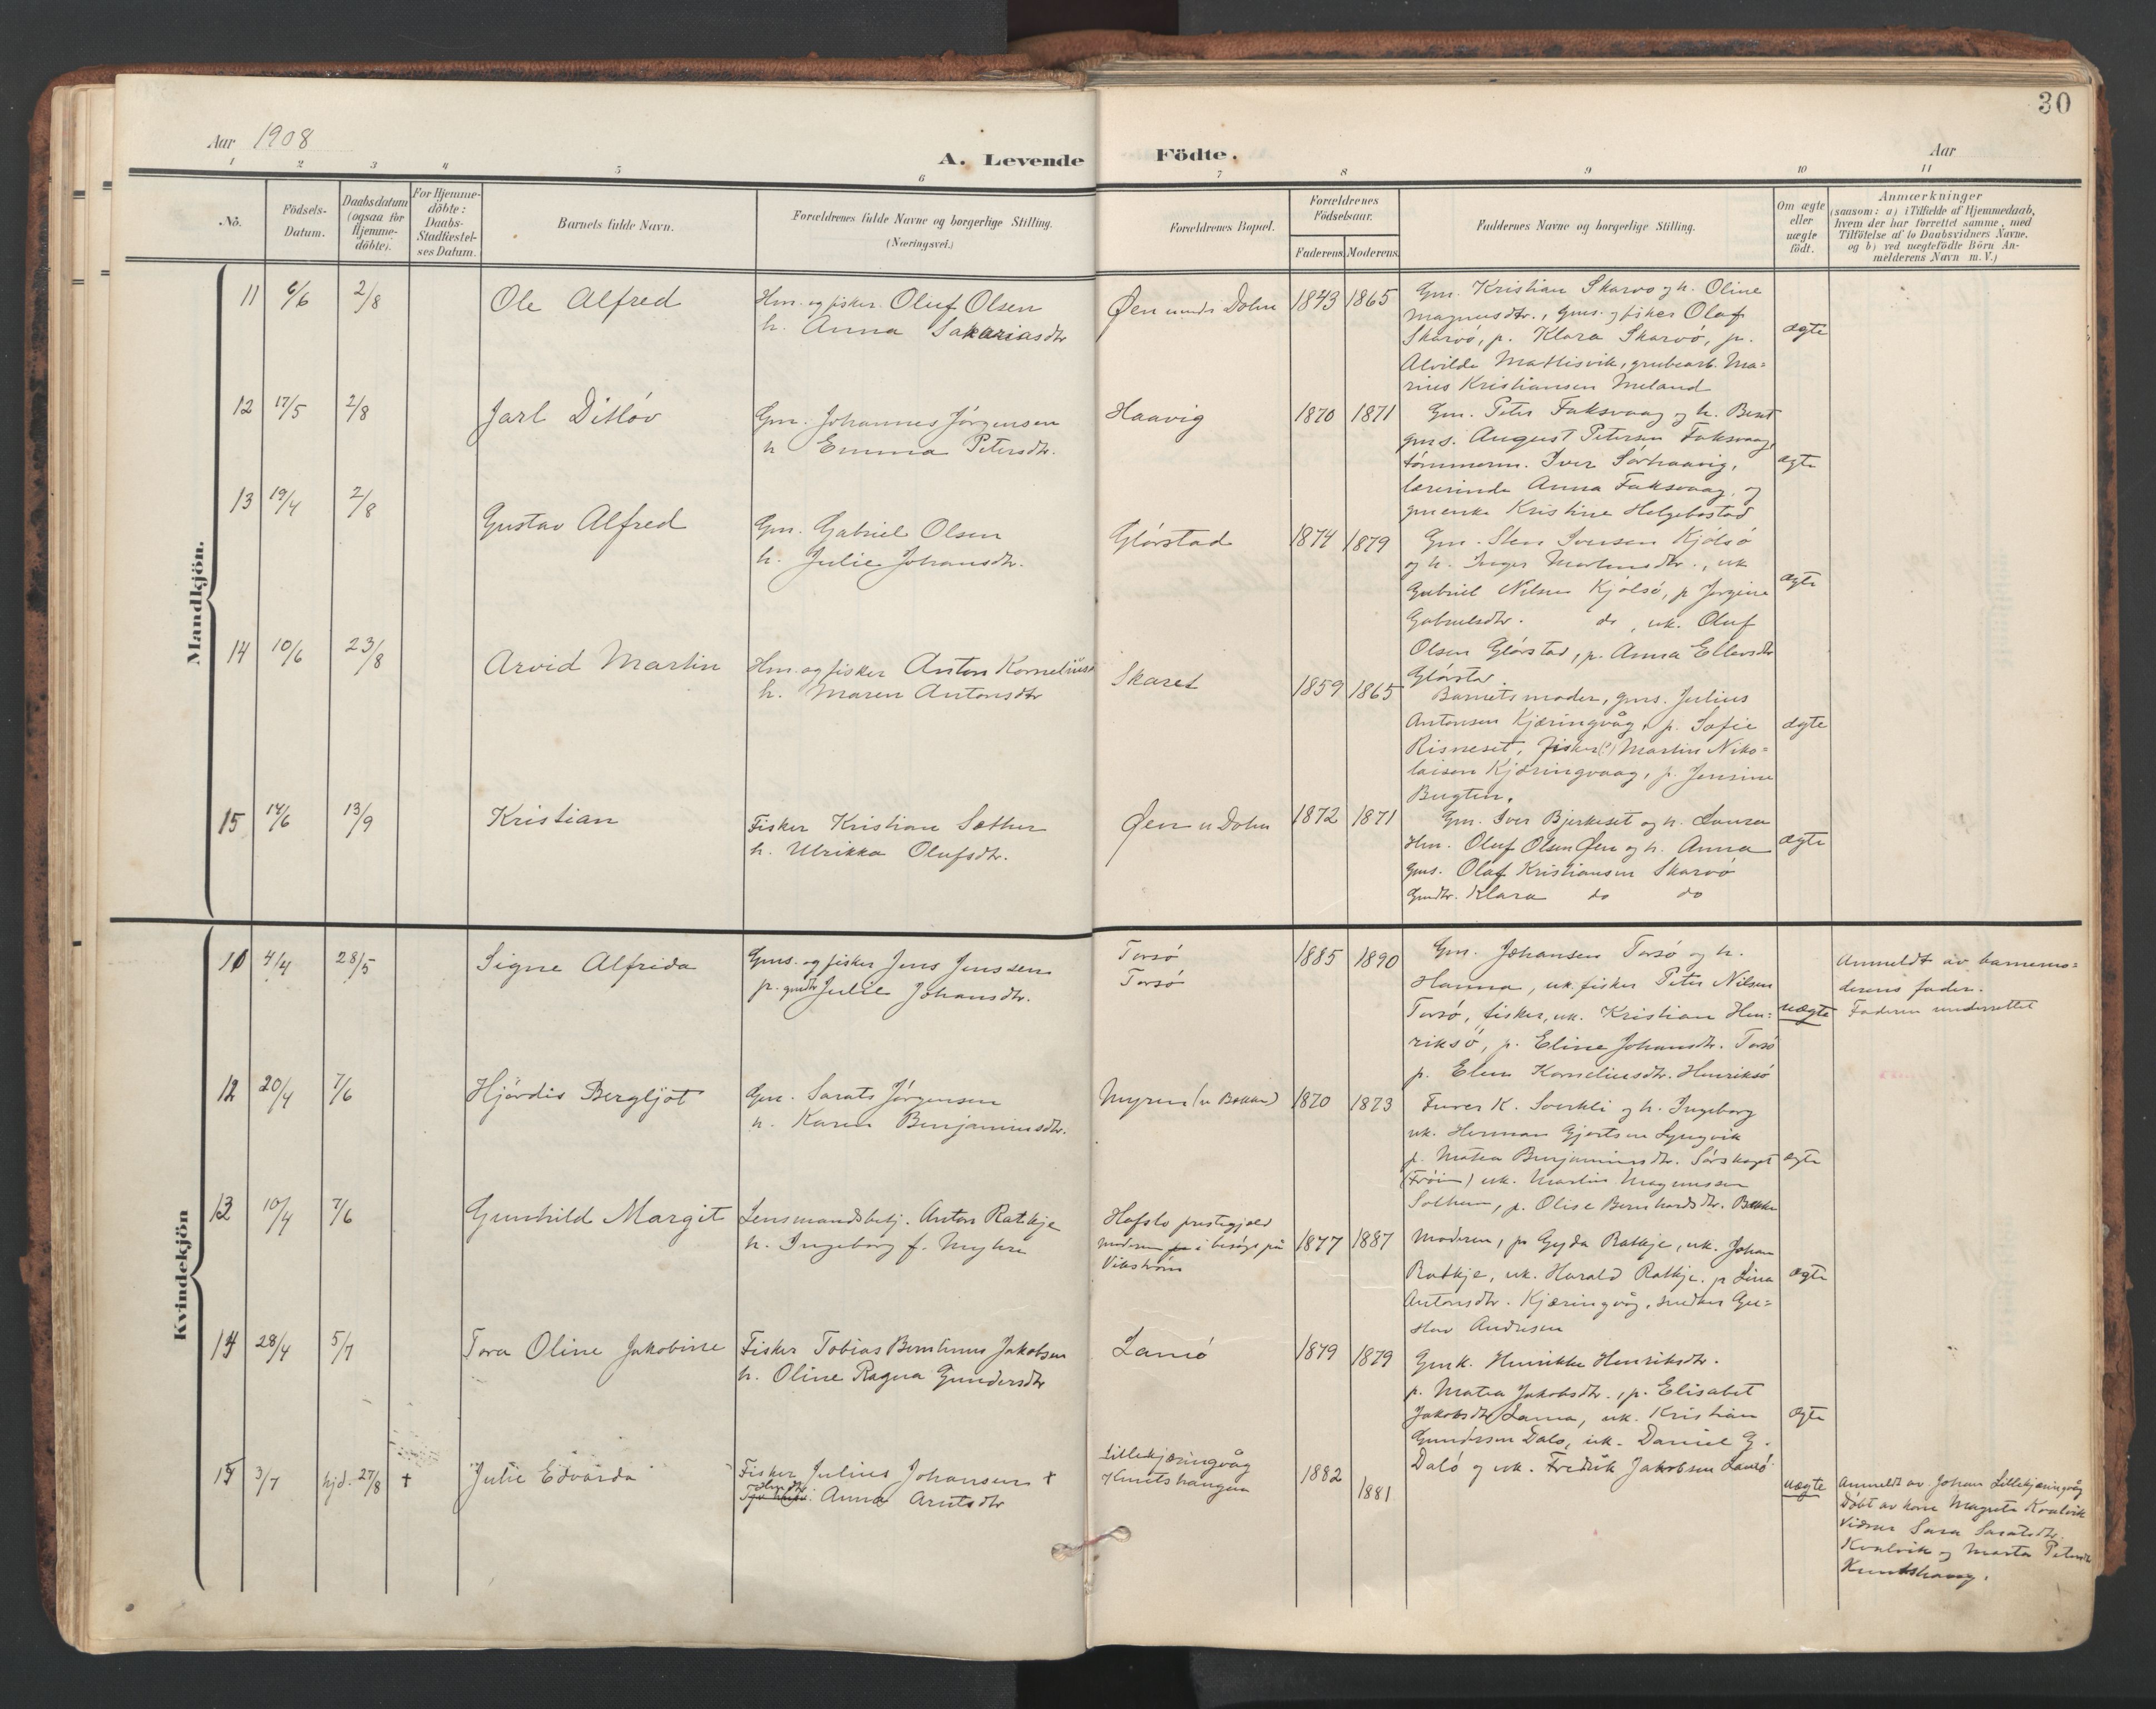 Aar 1908
A. Levende Födte.
Aar
30
1 2 3 4 5 6 7 8 9 10 11
No.
Födsels-
Datum.
Daabsdatum
(ogsaa for
Hjemme-
döbte).
For Hjemme-
döbte:
Daabs-
Stadfæstel-
ses Datum.
Barnets fulde Navn.
Forældrenes fulde Navne og borgerlige Stilling.
(Næringsvei.)
Forældrenes Bopæl.
Forældrenes
Födselsaar.
Faderens Moderens
Faddernes Navne og borgerlige Stilling.
Om ægte
eller
uægte
födt.
Anmærkninger
(saasom: a) i Tilfælde af Hjemmedaab,
hvem der har forrettet samme, med
Tilföielse af to Daabsvidners Navne,
og b) ved uægtefödte Börn An-
melderens Navn m. V.)
Mandkjön.
11 6/6 2/8
Ole Alfred
Hm. og fisker Oluf Olsen
h. Anna Sakariasdtr
Øen under Dolm
1843 1865
Gm. Kristian Skarvø og h. Oline
Magnusdtr., gms. og fisker Olaf
Skarvö, p. Klara Skarvö, p.
Alvilde Mattisvik, grubearb. Ma=
rius Kristiansen Meland
ægte
12 17/5 2/8
Jarl Ditlöv
Gm. Johannes Jörgensen
h Emma Petersdtr.
Haavig
1870 1871
Gm. Peter Faksvaag og h. Berit
gms. August Petersen Faksvaag,
tömmerm. Iver Sörhaavig,
lærerinde Anna Faksvaag, og
gmenke Kristine Helgebostad
ægte
13 19/4 2/8
Gustav Alfred
Gm. Gabriel Olsen
h. Julie Johansdtr.
Glörstad
1874 1879
Gm. Sten Iversen Kjölsö
og h. Inger Martinsdtr., uk
Gabriel Nilsen Kjölsö, p Jörgine
Gabrielsdtr. do, uk. Oluf
Olsen Glörstad, p. Anna Ellensdtr
Glörstad.
ægte
14 10/6 23/8
Arvid Martin
Hm. og fisker Anton Kornelius
h. Maren Antonsdtr
Skaret
1859 1865
Barnets moder, gms. Julius
Antonsen Kjæringvåg, p. Sofie
Risneset, fisker(?) Martin Niko=
laisen Kjæringvaag, p. Jensine
Bugten.
ægte
15 14/6 13/9
Kristian
Fisker Kristian Sæther
h. Ulrikka Olufsdtr.
Øen u Dolm
1872 1871
Gm. Iver Bjerkeset og h. Laura
Hm. Oluf Olsen Øen og h. Anna
gms. Olaf Kristiansen Skarvö
Gmdtr. Klara do do
ægte
Kvindekjön
11 4/4 28/5
Signe Alfrida
Gms. og fisker Jens Jenssen
p. gmdtr Julie Johansdtr.
Torsö
Torsö
1885 1890
Gm. Johansen Torsø og h.
Hanna, uk. fisker Peter Nilsen
Torsö, fisker, uk. Kristian Hen=
riksö, p. Eline Johansdtr. Torsö
p. Elen Korneliusdtr. Henriksö
uægte
Anmeldt av barnemo=
derens fader.
Faderen underrettet
12 20/4 7/6
Hjördis Bergljot
Gm. Sarats Jörgensen
h. Karen Benjaminsdtr.
Myren (u Bakken)
1870 1873
Furer K. Sverkli og h. Ingeborg
uk. Herman Gjertsen Lyngvik
p. Matea Benjaminsdtr. Sörskaget
(Fröien) uk. Martin Magnussen
Solhem, p. Olise Bernhardsdtr. Bakken
ægte
13 10/4 7/6
Gunhild Margit
Lensmandsbetj. Anton Ratkje
h. Ingeborg f. Myhre
Hafslo prestegjeld
moderen i besög på
Vikström
1877 1887
Moderen, p. Gyda Ratkje, uk. Johan
Ratkje, uk. Harald Ratkje, p Lina
Antonsdtr. Kjæringvåg, snedker Gu=
stav Andresen
ægte
14 28/4 5/7
Tora Oline Jakobine
Fisker Tobias Berntinus Jakobsen
h. Oline Ragna Gundersdtr
Lamö
1879 1879
Gmk. Henrikke Henriksdtr.
p. Matea Jakobsdtr., p. Elisabet
Jakobsdtr Lamø, uk. Kristian
Gundersen Dalö, uk. Daniel G.
Dalö og uk. Fredrik Jakobsen Lamö
ægte
15 3/7 hjd. 27/8 +
Julie Edvarda
Fisker Julius Johansen +
Hmdtr. Anna Arntsdtr
Lillekjæringvåg
Knutshaugen
1882 1881
uægte
Anmeldt av Johan Lillekjæringvåg
Döbt av kone Magrete Kvalvik
Vidner Sara Saratsdtr.
Kvalvik og Marta Petersdtr
Knutshaug.